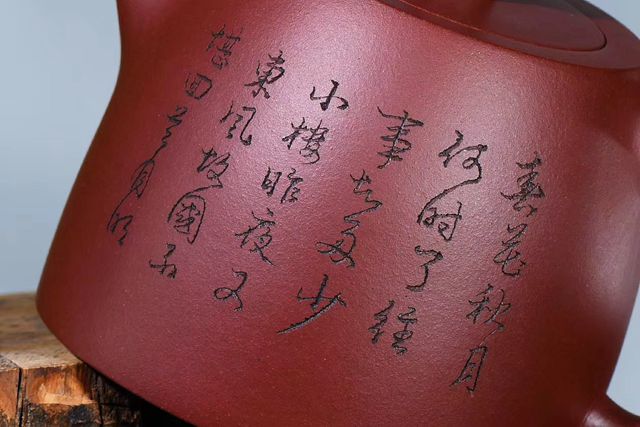 春花秋月
何时了往
事知多少
小楼昨夜又
東风故國不
堪回首月明